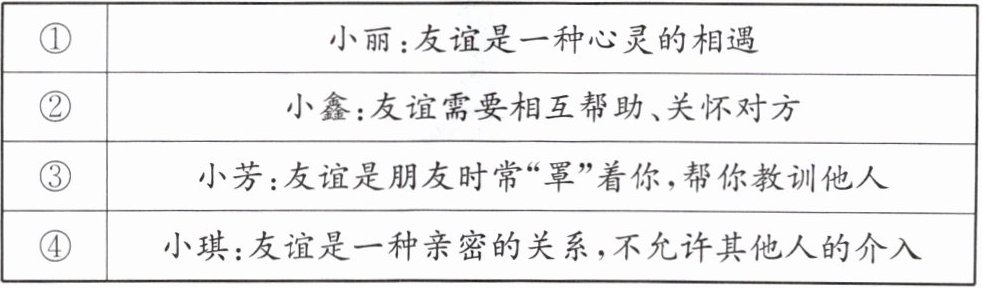 ① 小丽:友谊是一种心灵的相遇
② 小鑫:友谊需要相互帮助、关怀对方
③ 小芳:友谊是朋友时常“罩”着你,帮你教训他人
④ 小琪:友谊是一种亲密的关系,不允许其他人的介入